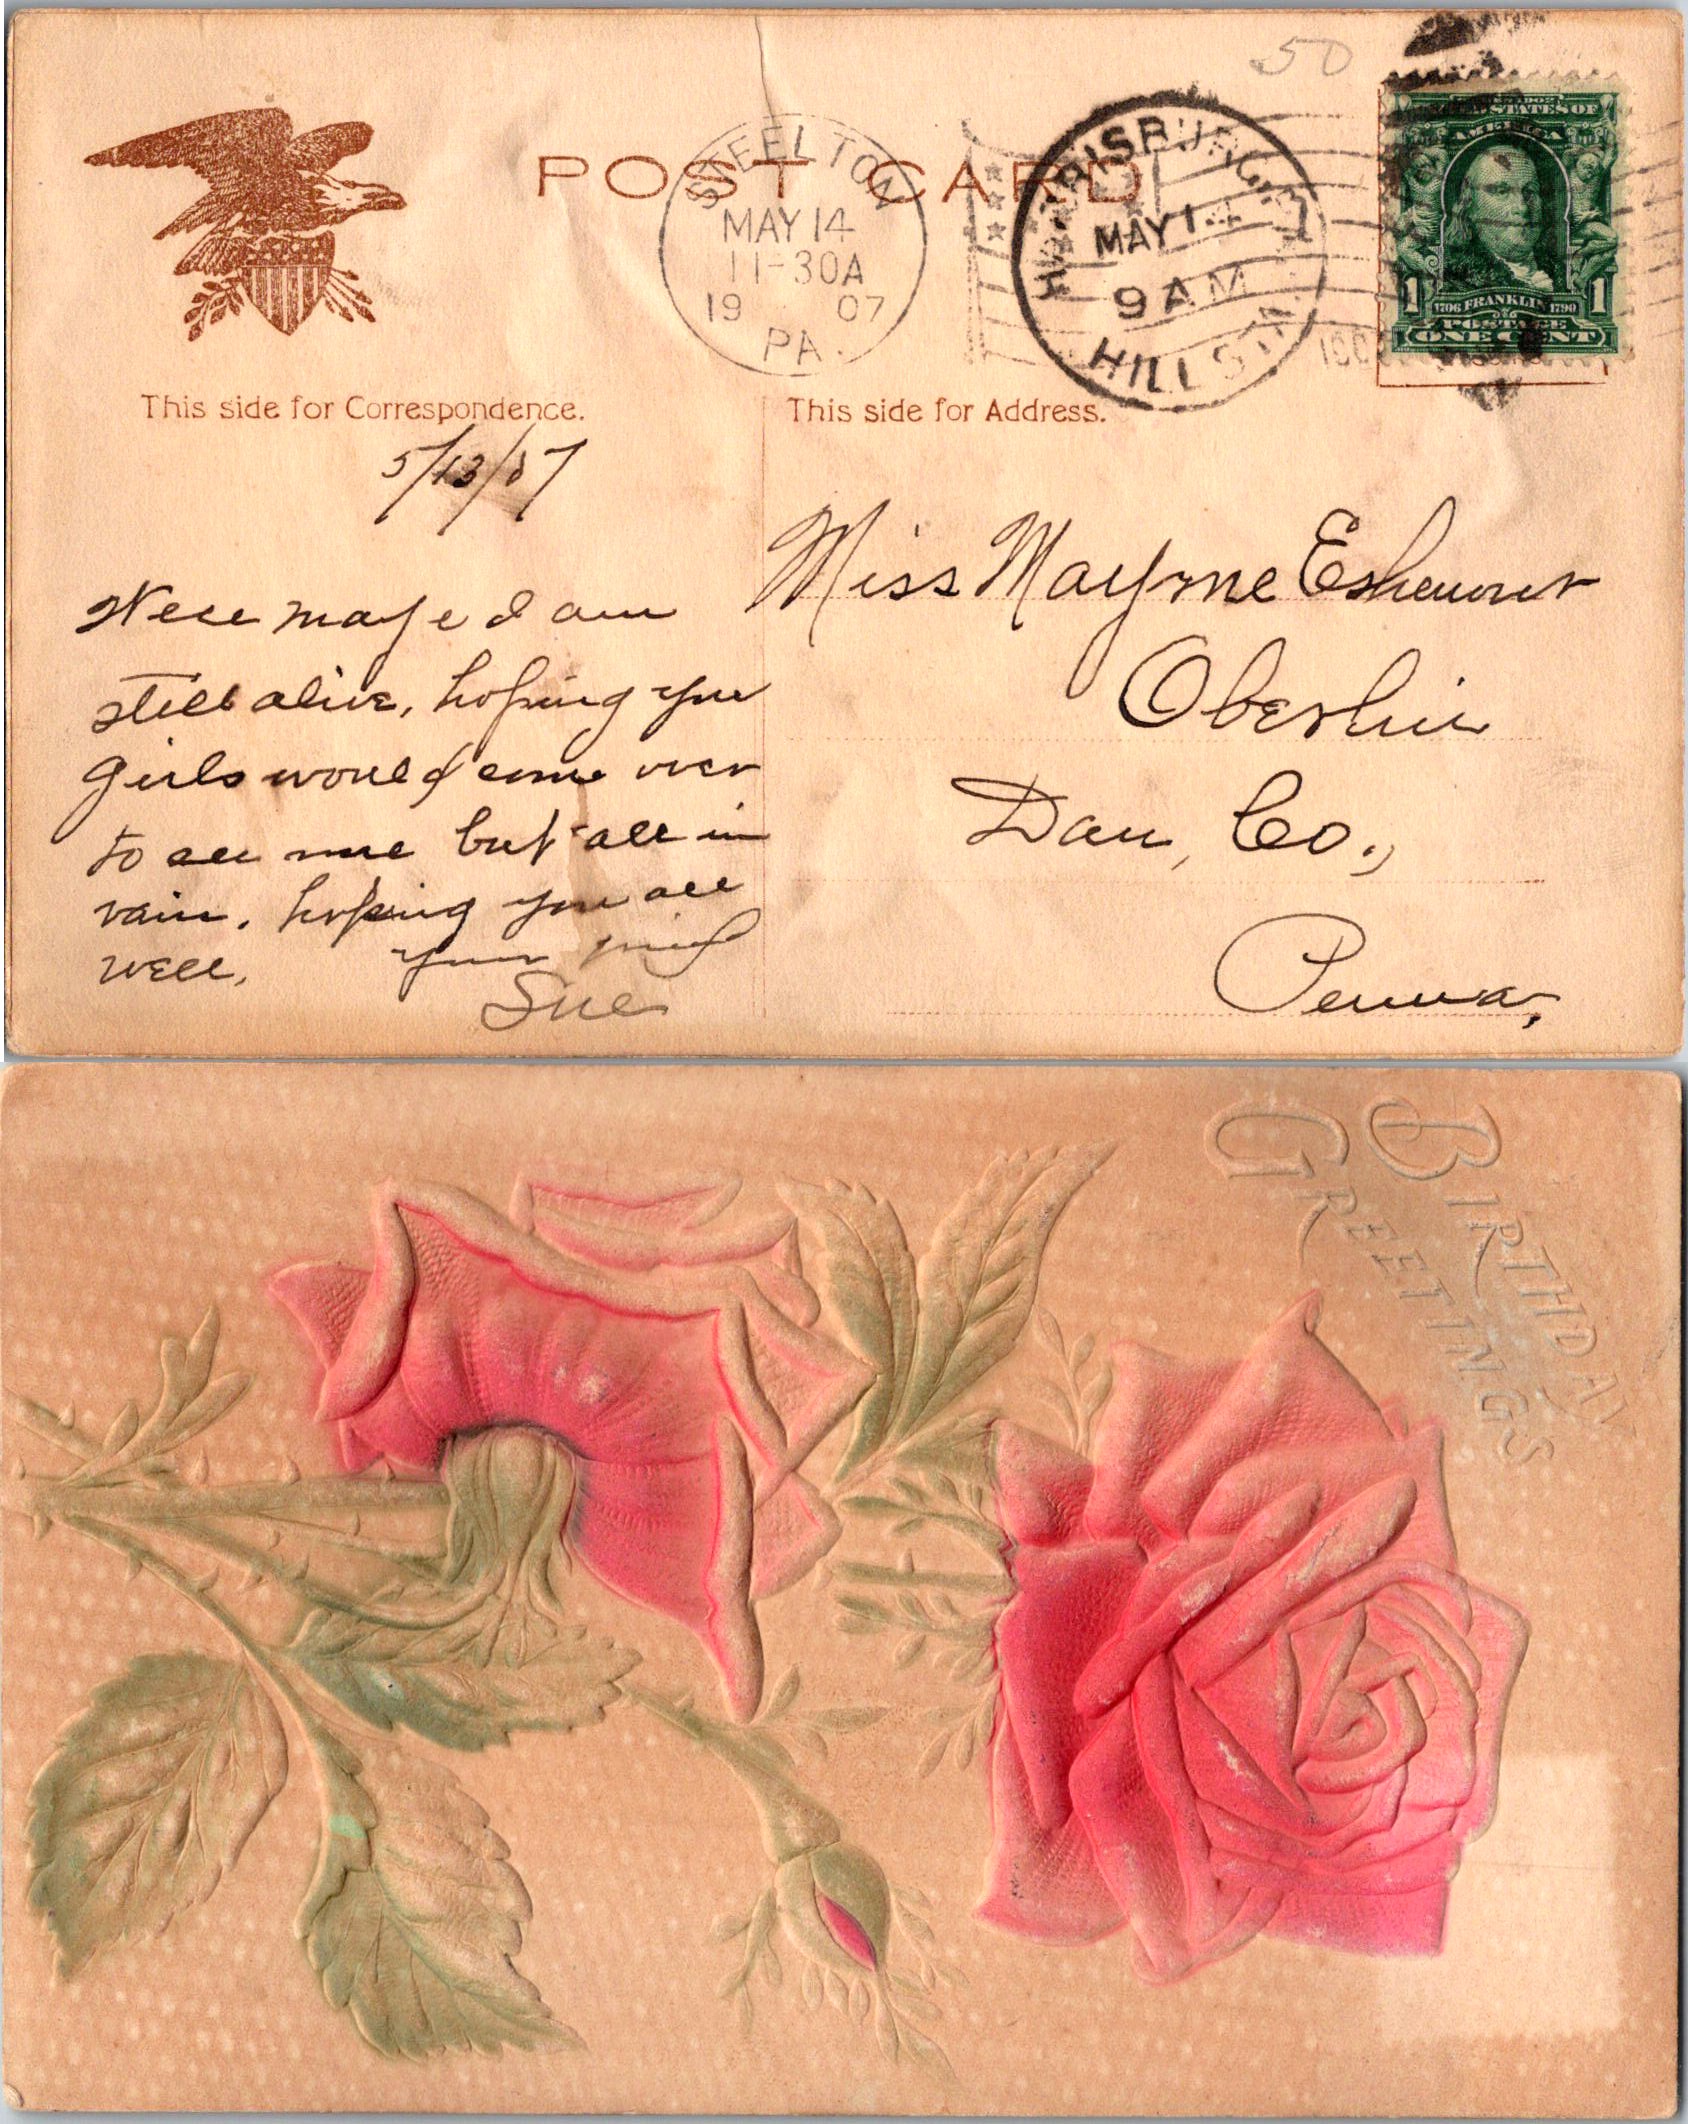 50
POST CARD
STEELTON
MAY 14
11-30A
1907
PA.
HARRISBURG
MAY 14
9 AM
HILL STA.
STATES OF
AMERICA
1 1706 FRANKLIN 1790 1
POSTAGE
ONE CENT
This side for Correspondence.
This side for Address.
5/13/07
Well Mayme I am
still alive, hoping you
girls would come over
to see me but all in
vain. hoping you all
well. your
Sue
Miss Mayme
Oberlin
Dau, Co.,
Penna,
BIRTHDAY
GREETINGS